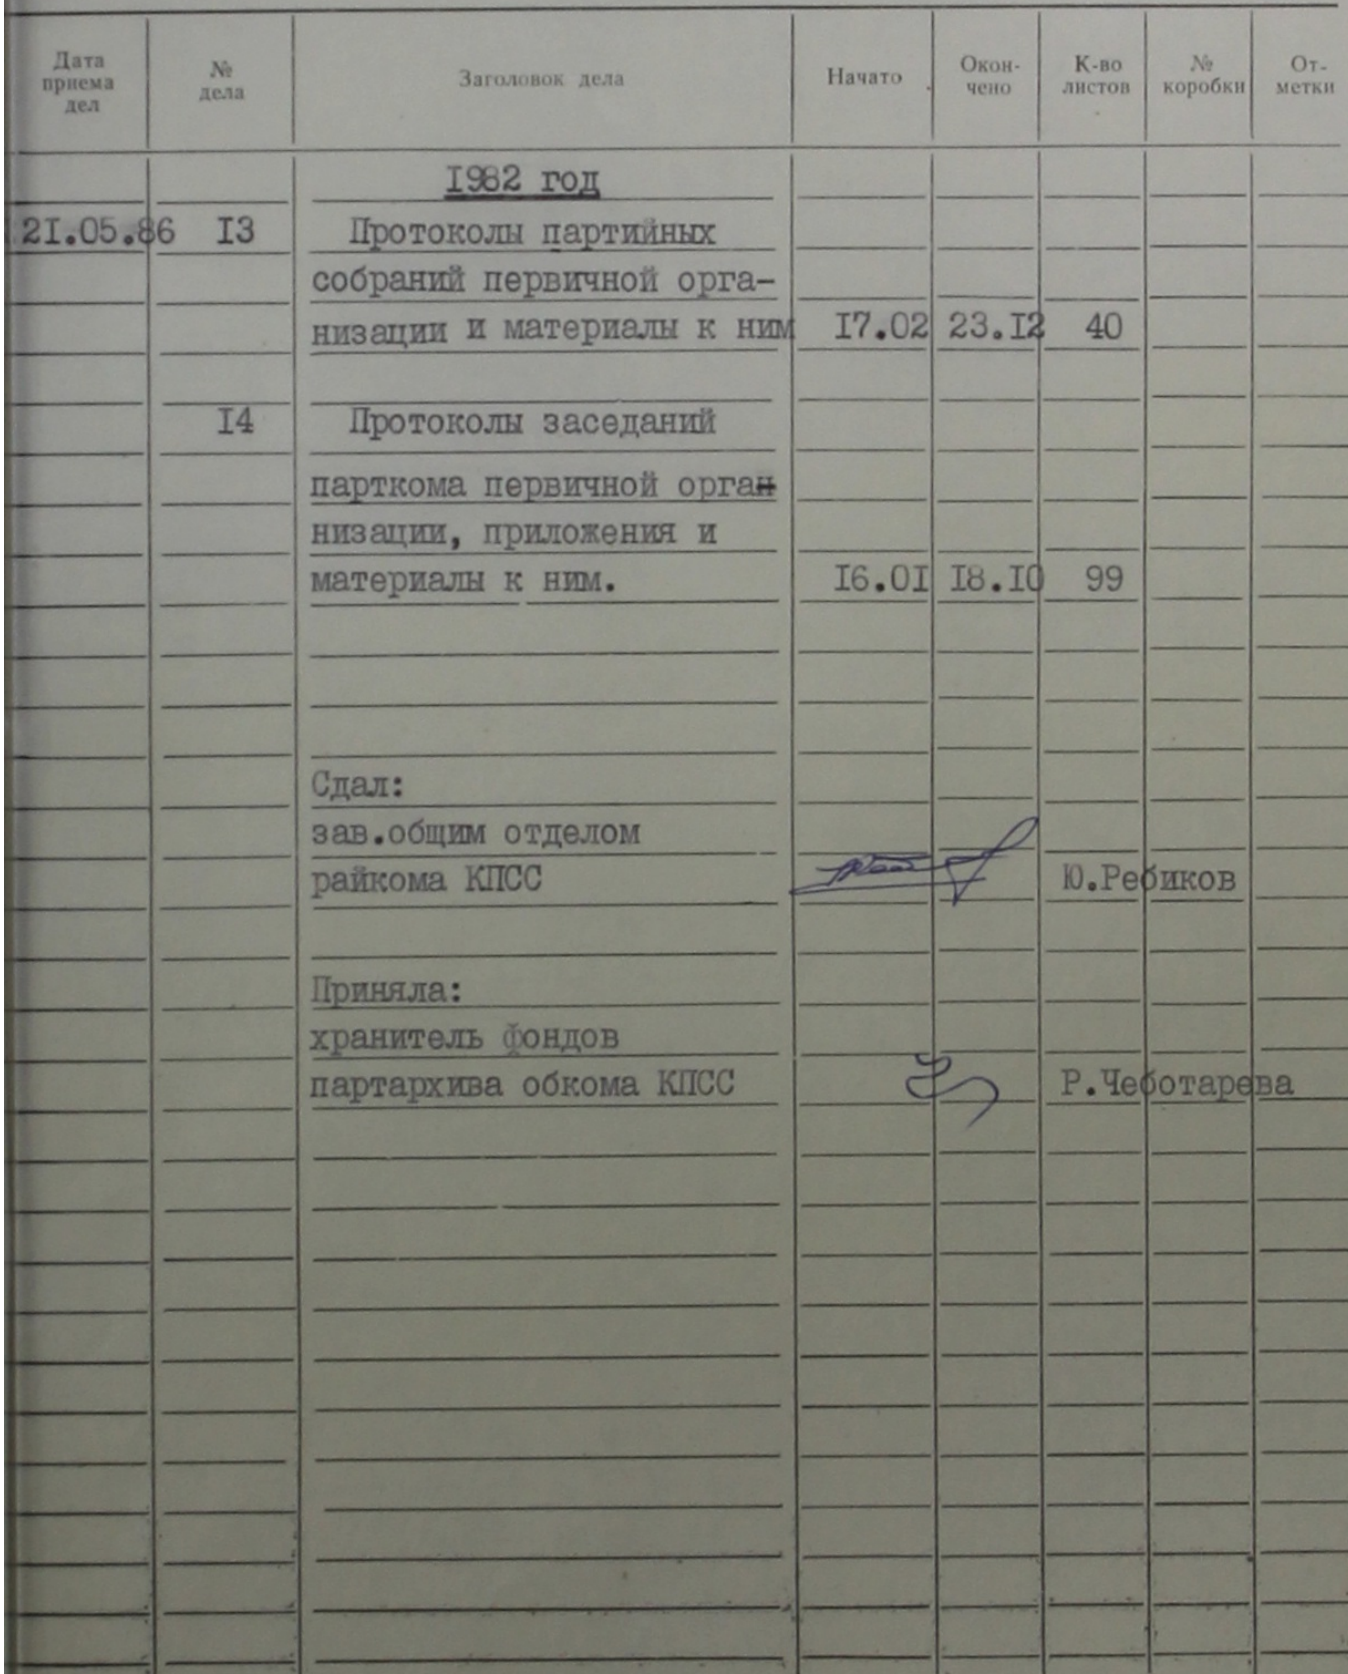 Дата приема дел № дела Заголовок дела Начато Окон- чено К-во листов № коробки От- метки
1982 год
21.05.86 13 Протоколы партийных
собраний первичной орга-
низации и материалы к ним 17.02 23.12 40
14 Протоколы заседаний
парткома первичной орган
низации, приложения и
материалы к ним. 16.01 18.10 99
Сдал:
зав.общим отделом
райкома КПСС Ю.Ребиков
Приняла:
хранитель фондов
партархива обкома КПСС Р.Чеботарева